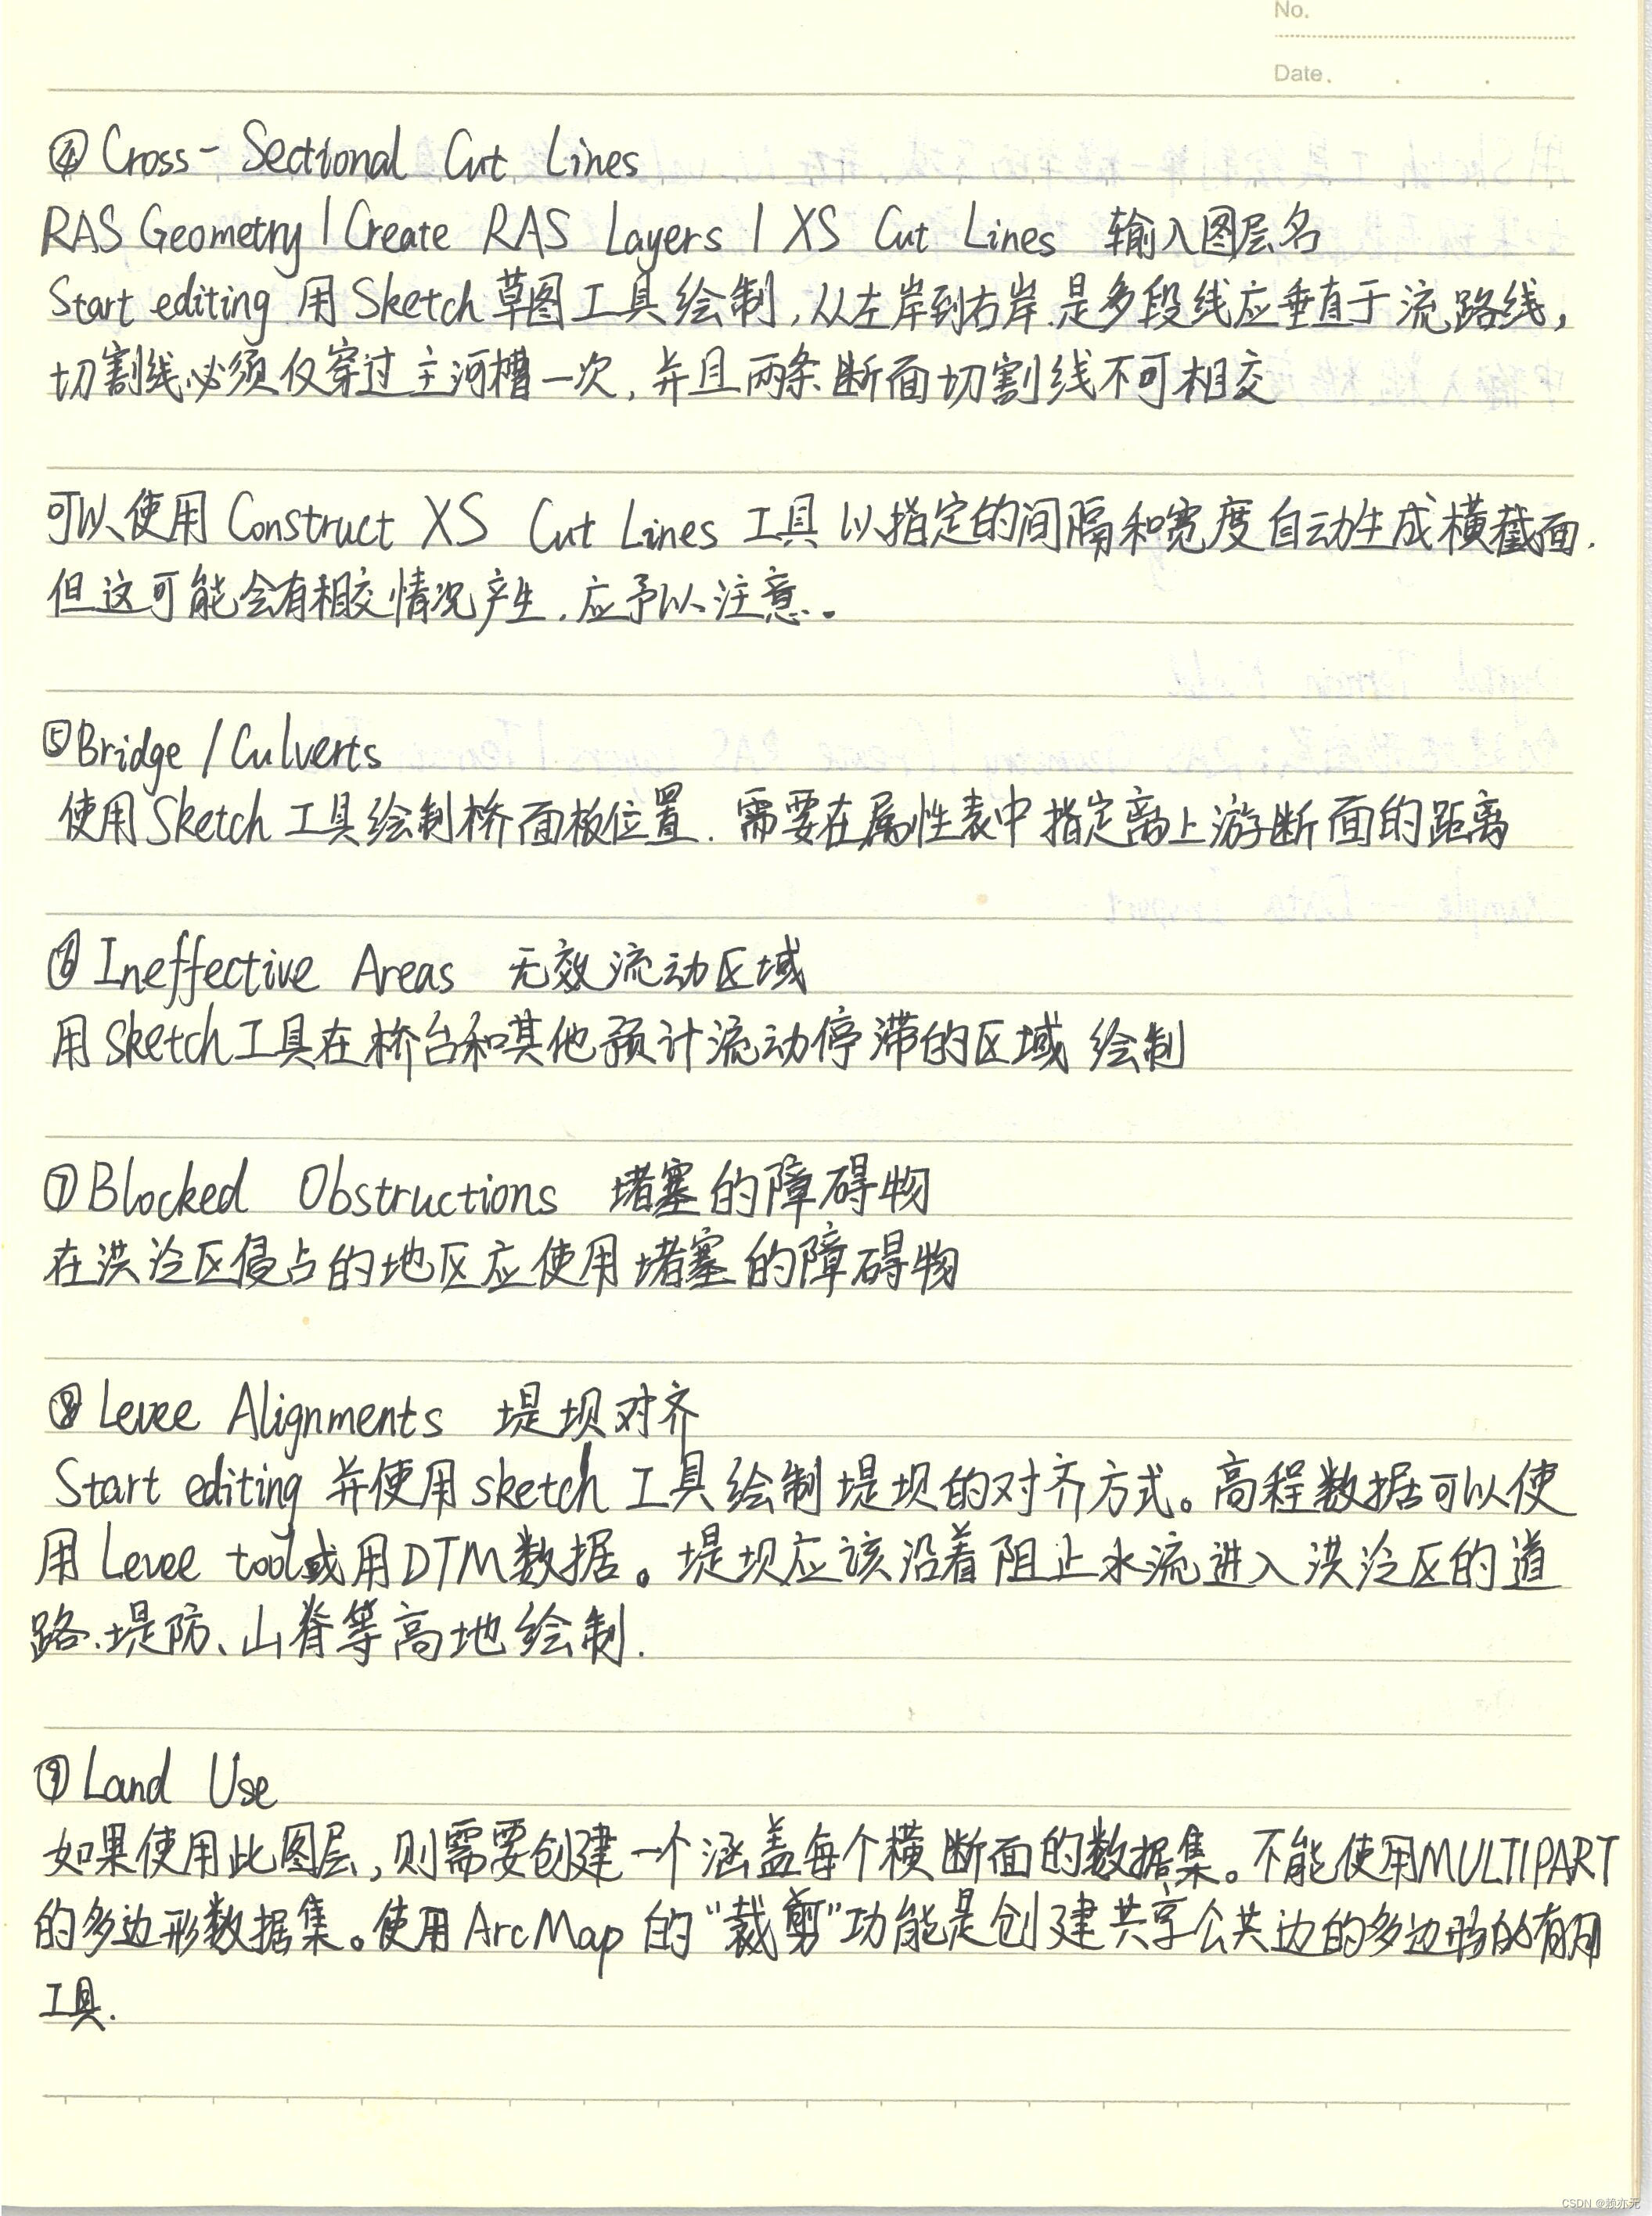 No.
Date.
④ Cross-Sectional Cut Lines
RAS Geometry | Create RAS Layers | XS Cut Lines 输入图层名
Start editing 用Sketch草图工具绘制,从左岸到右岸.是多段线应垂直于流路线,
切割线必须仅穿过主河槽一次,并且两条断面切割线不可相交
可以使用 Construct XS Cut Lines 工具 以指定的间隔和宽度自动生成横截面.
但这可能会有相交情况产生.应予以注意.
⑤Bridge / Culverts
使用Sketch工具绘制桥面板位置.需要在属性表中指定离上游断面的距离
⑥ Ineffective Areas 无效流动区域
用sketch工具在桥台和其他预计流动停滞的区域 绘制
⑦Blocked Obstructions 堵塞的障碍物
在洪泛区侵占的地区应使用堵塞的障碍物
⑧ Levee Alignments 堤坝对齐
Start editing 并使用sketch工具绘制堤坝的对齐方式。高程数据可以使
用Levee tool或用DTM数据。堤坝应该沿着阻止水流进入洪泛区的道
路、堤防、山脊等高地绘制.
⑨ Land Use
如果使用此图层,则需要创建一个涵盖每个横断面的数据集。不能使用MULTIPART
的多边形数据集。使用ArcMap的“裁剪”功能是创建共享公共边的多边形的有用
工具.
CSDN @赖亦无